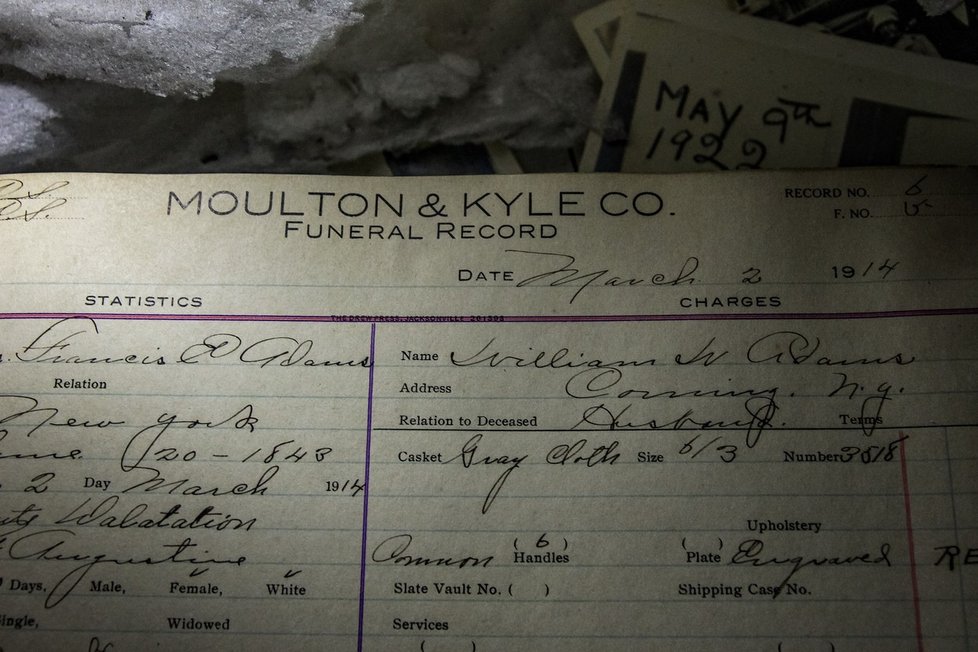 MAY 9TH
1922
MOULTON & KYLE CO.
FUNERAL RECORD
RECORD NO. 6
F. NO.
DATE March 2 1914
STATISTICS
CHARGES
THE DREW PRESS, JACKSONVILLE
Francis E Adams
Name William W Adams
Relation
Address Corning, N.Y.
New York
Relation to Deceased Husband. Terms
20 - 1843
Casket Gray Cloth Size 6/3 Number 3518
2 Day March 1914
Dalatation
Upholstery
Augustine
Common (6) Handles ( ) Plate Engraved RE
Days, Male, Female, White
Slate Vault No. ( ) Shipping Case No.
Single, Widowed
Services